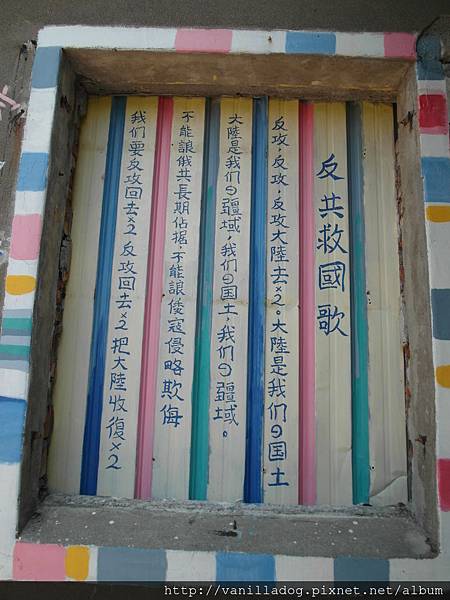 反共救國歌
反攻．反攻．反攻大陸去×2。大陸是我们の国土
大陸是我们の疆域，我们の国土，我们の疆域。
不能讓俄共長期佔据．不能讓倭寇侵略欺侮
我们要反攻回去×2 反攻回去×2 把大陸收復×2
http://vanilladog.pixnet.net/album